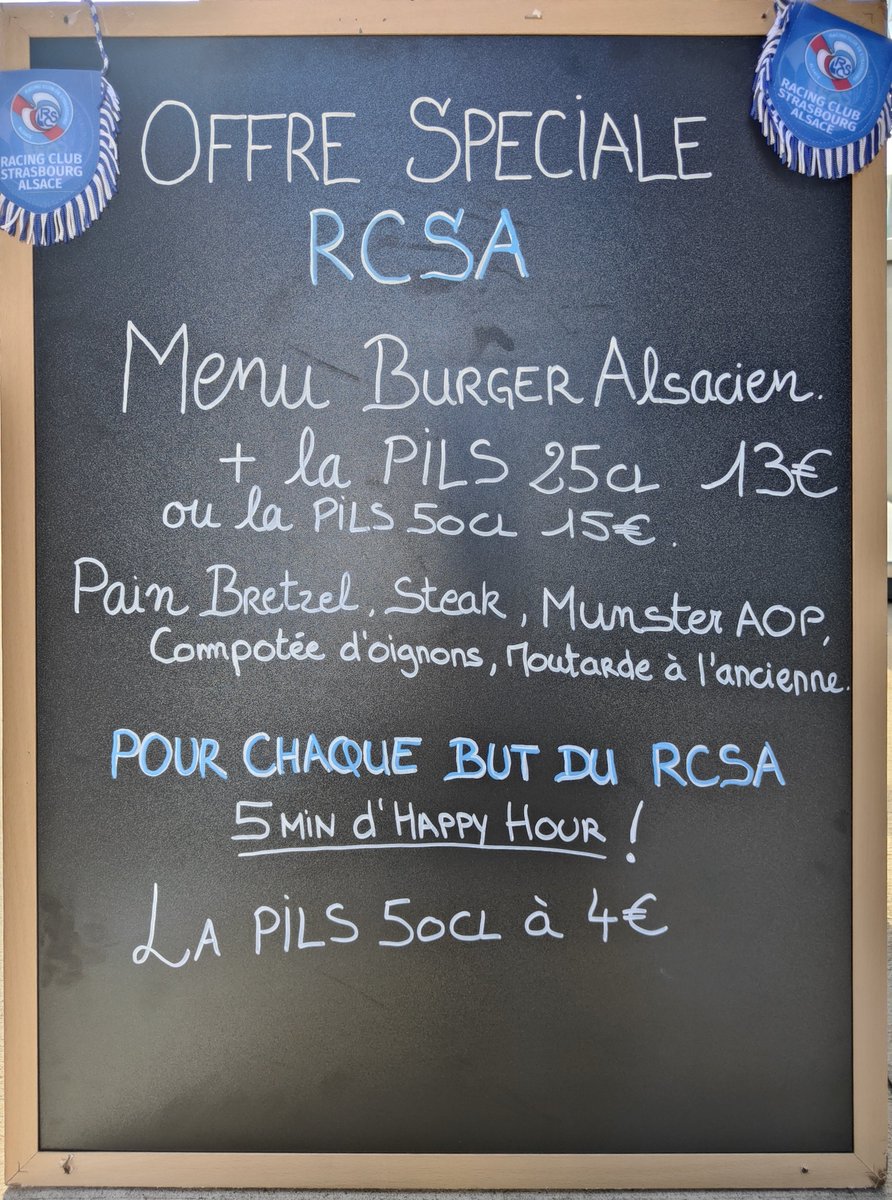 RACING CLUB
STRASBOURG
ALSACE
RACING CLUB
STRASBOURG
ALSACE
OFFRE SPECIALE
RCSA
Menu BURGER Alsacien.
+ la PILS 25CL 13€
ou la PILS 50CL 15€.
Pain Bretzel, Steak, Munster AOP,
Compotée d'oignons, Moutarde à l'ancienne.
POUR CHAQUE BUT DU RCSA
5 MIN d'HAPPY HOUR !
LA PILS 50CL à 4€